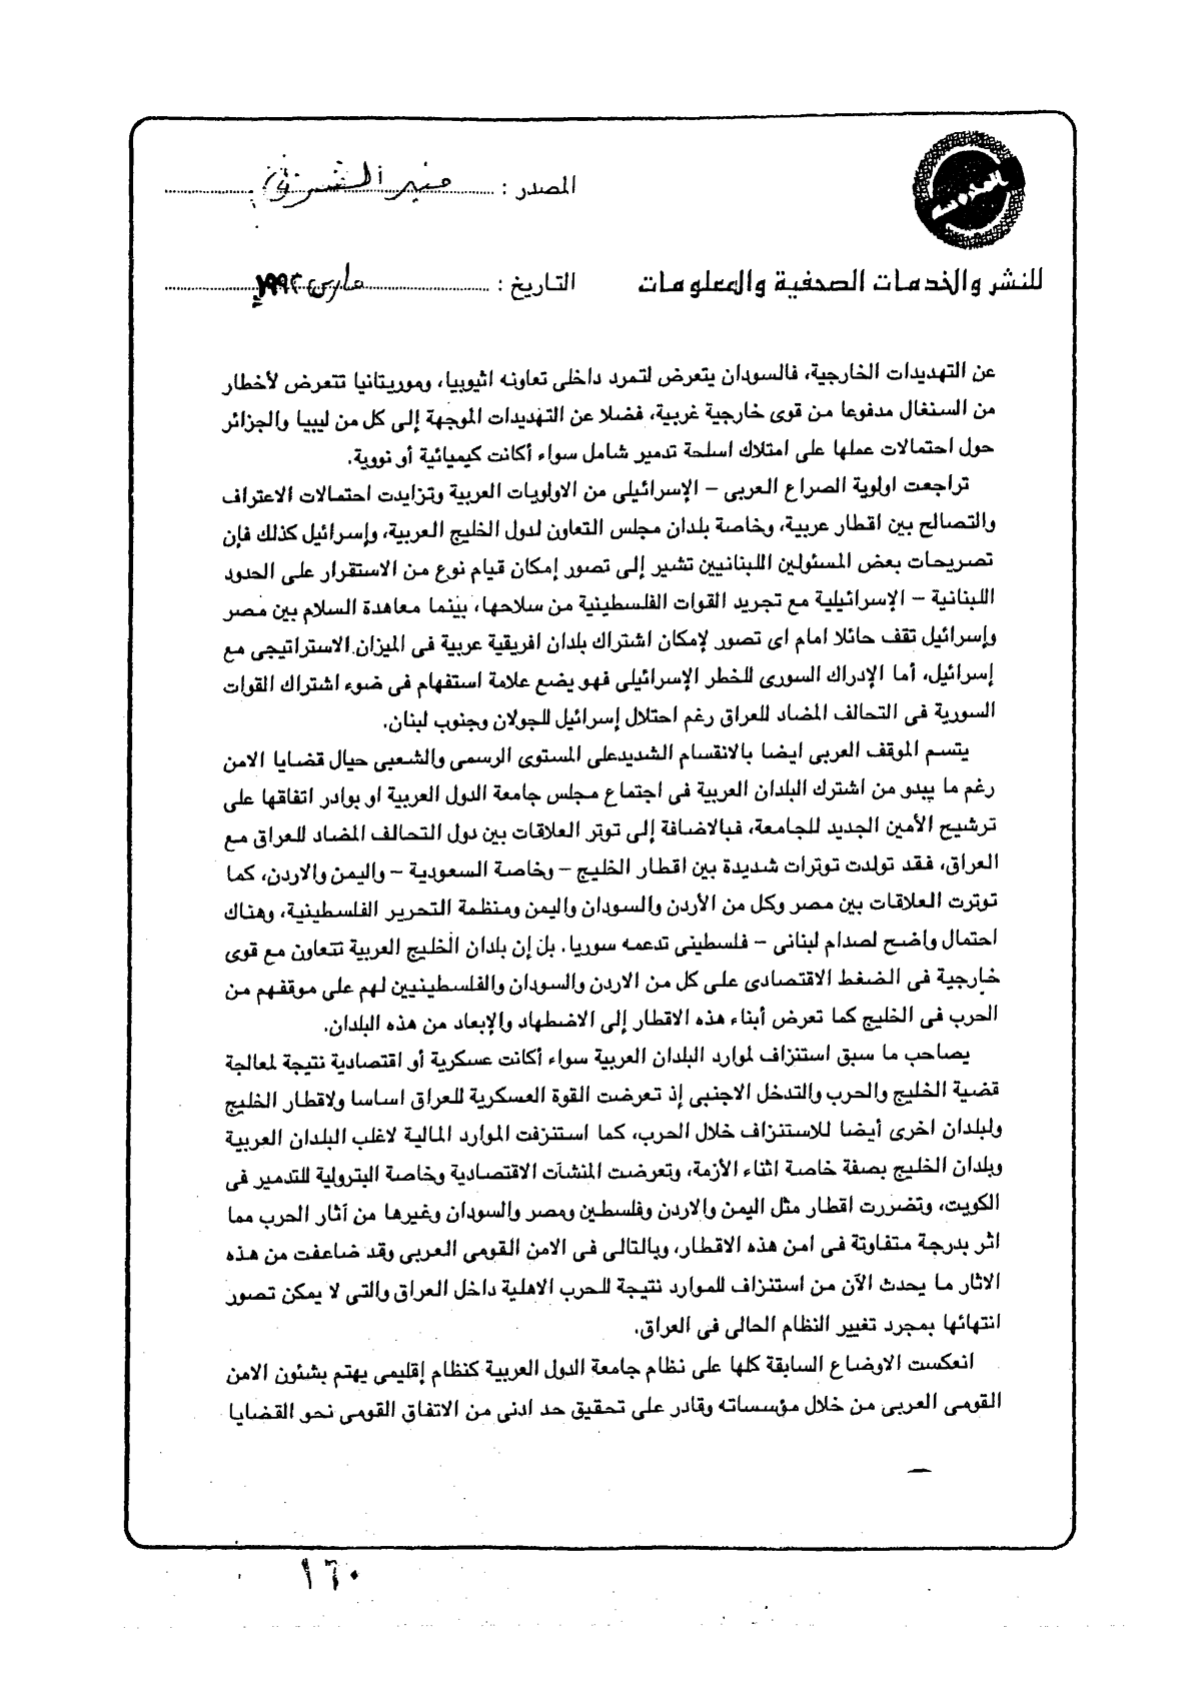 المصدر : منبر الشرق
للنشر والخدمات الصحفية والمعلومات
التاريخ : مارس ١٩٩٢
عن التهديدات الخارجية، فالسودان يتعرض لتمرد داخلى تعاونه اثيوبيا، وموريتانيا تتعرض لأخطار
من السنغال مدفوعا من قوى خارجية غربية، فضلا عن التهديدات الموجهة إلى كل من ليبيا والجزائر
حول احتمالات عملها على امتلاك اسلحة تدمير شامل سواء أكانت كيميائية أو نووية.
تراجعت اولوية الصراع العربى – الإسرائيلى من الاولويات العربية وتزايدت احتمالات الاعتراف
والتصالح بين اقطار عربية، وخاصة بلدان مجلس التعاون لدول الخليج العربية، وإسرائيل كذلك فإن
تصريحات بعض المسئولين اللبنانيين تشير إلى تصور إمكان قيام نوع من الاستقرار على الحدود
اللبنانية – الإسرائيلية مع تجريد القوات الفلسطينية من سلاحها، بينما معاهدة السلام بين مصر
وإسرائيل تقف حائلا امام اى تصور لإمكان اشتراك بلدان افريقية عربية فى الميزان الاستراتيجى مع
إسرائيل، أما الإدراك السورى للخطر الإسرائيلى فهو يضع علامة استفهام فى ضوء اشتراك القوات
السورية فى التحالف المضاد للعراق رغم احتلال إسرائيل للجولان وجنوب لبنان.
يتسم الموقف العربى ايضا بالانقسام الشديدعلى المستوى الرسمى والشعبى حيال قضايا الامن
رغم ما يبدو من اشترك البلدان العربية فى اجتماع مجلس جامعة الدول العربية او بوادر اتفاقها على
ترشيح الأمين الجديد للجامعة، فبالاضافة إلى توتر العلاقات بين دول التحالف المضاد للعراق مع
العراق، فقد تولدت توترات شديدة بين اقطار الخليج – وخاصة السعودية – واليمن والاردن، كما
توترت العلاقات بين مصر وكل من الأردن والسودان واليمن ومنظمة التحرير الفلسطينية، وهناك
احتمال واضح لصدام لبنانى – فلسطينى تدعمه سوريا. بل إن بلدان الخليج العربية تتعاون مع قوى
خارجية فى الضغط الاقتصادى على كل من الاردن والسودان والفلسطينيين لهم على موقفهم من
الحرب فى الخليج كما تعرض أبناء هذه الاقطار إلى الاضطهاد والإبعاد من هذه البلدان.
يصاحب ما سبق استنزاف لموارد البلدان العربية سواء أكانت عسكرية أو اقتصادية نتيجة لمعالجة
قضية الخليج والحرب والتدخل الاجنبى إذ تعرضت القوة العسكرية للعراق اساسا ولاقطار الخليج
ولبلدان اخرى أيضا للاستنزاف خلال الحرب، كما استنزفت الموارد المالية لاغلب البلدان العربية
وبلدان الخليج بصفة خاصة اثناء الأزمة، وتعرضت المنشآت الاقتصادية وخاصة البترولية للتدمير فى
الكويت، وتضررت اقطار مثل اليمن والاردن وفلسطين ومصر والسودان وغيرها من آثار الحرب مما
اثر بدرجة متفاوتة فى امن هذه الاقطار، وبالتالى فى الامن القومى العربى وقد ضاعفت من هذه
الاثار ما يحدث الآن من استنزاف للموارد نتيجة للحرب الاهلية داخل العراق والتى لا يمكن تصور
انتهائها بمجرد تغيير النظام الحالى فى العراق.
انعكست الاوضاع السابقة كلها على نظام جامعة الدول العربية كنظام إقليمى يهتم بشئون الامن
القومى العربى من خلال مؤسساته وقادر على تحقيق حد ادنى من الاتفاق القومى نحو القضايا
١٦٠